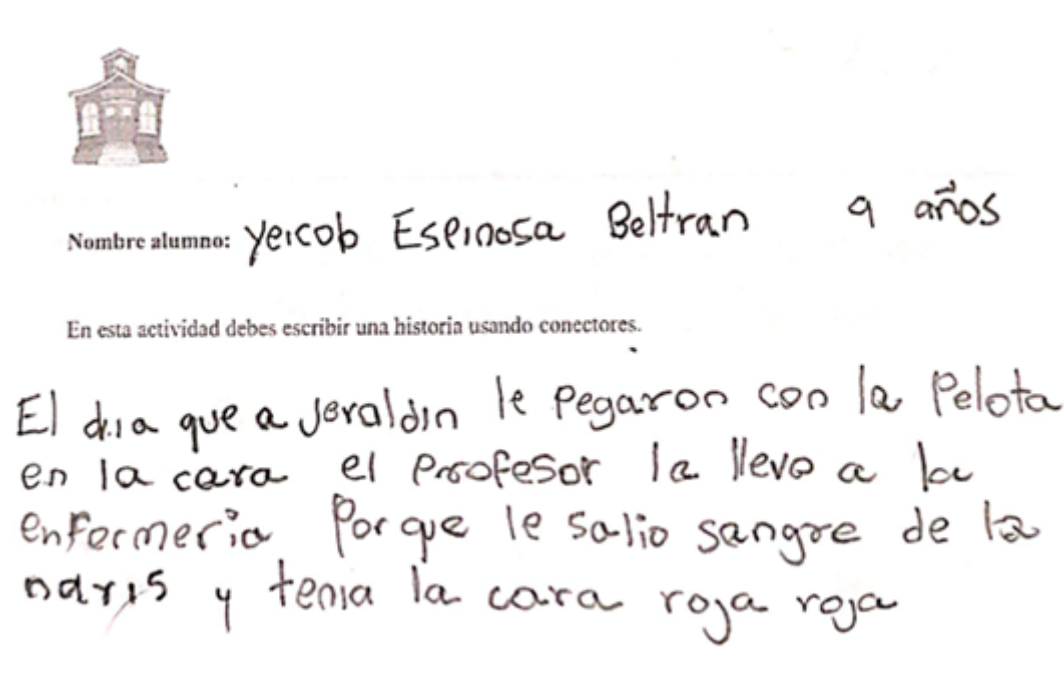 Nombre alumno: Yeicob Espinosa Beltran 9 años
En esta actividad debes escribir una historia usando conectores.
El dia que a Jeraldin le Pegaron con la Pelota
en la cara el Profesor la llevo a la
enfermeria Por que le salio sangre de la
naris y tenia la cara roja roja